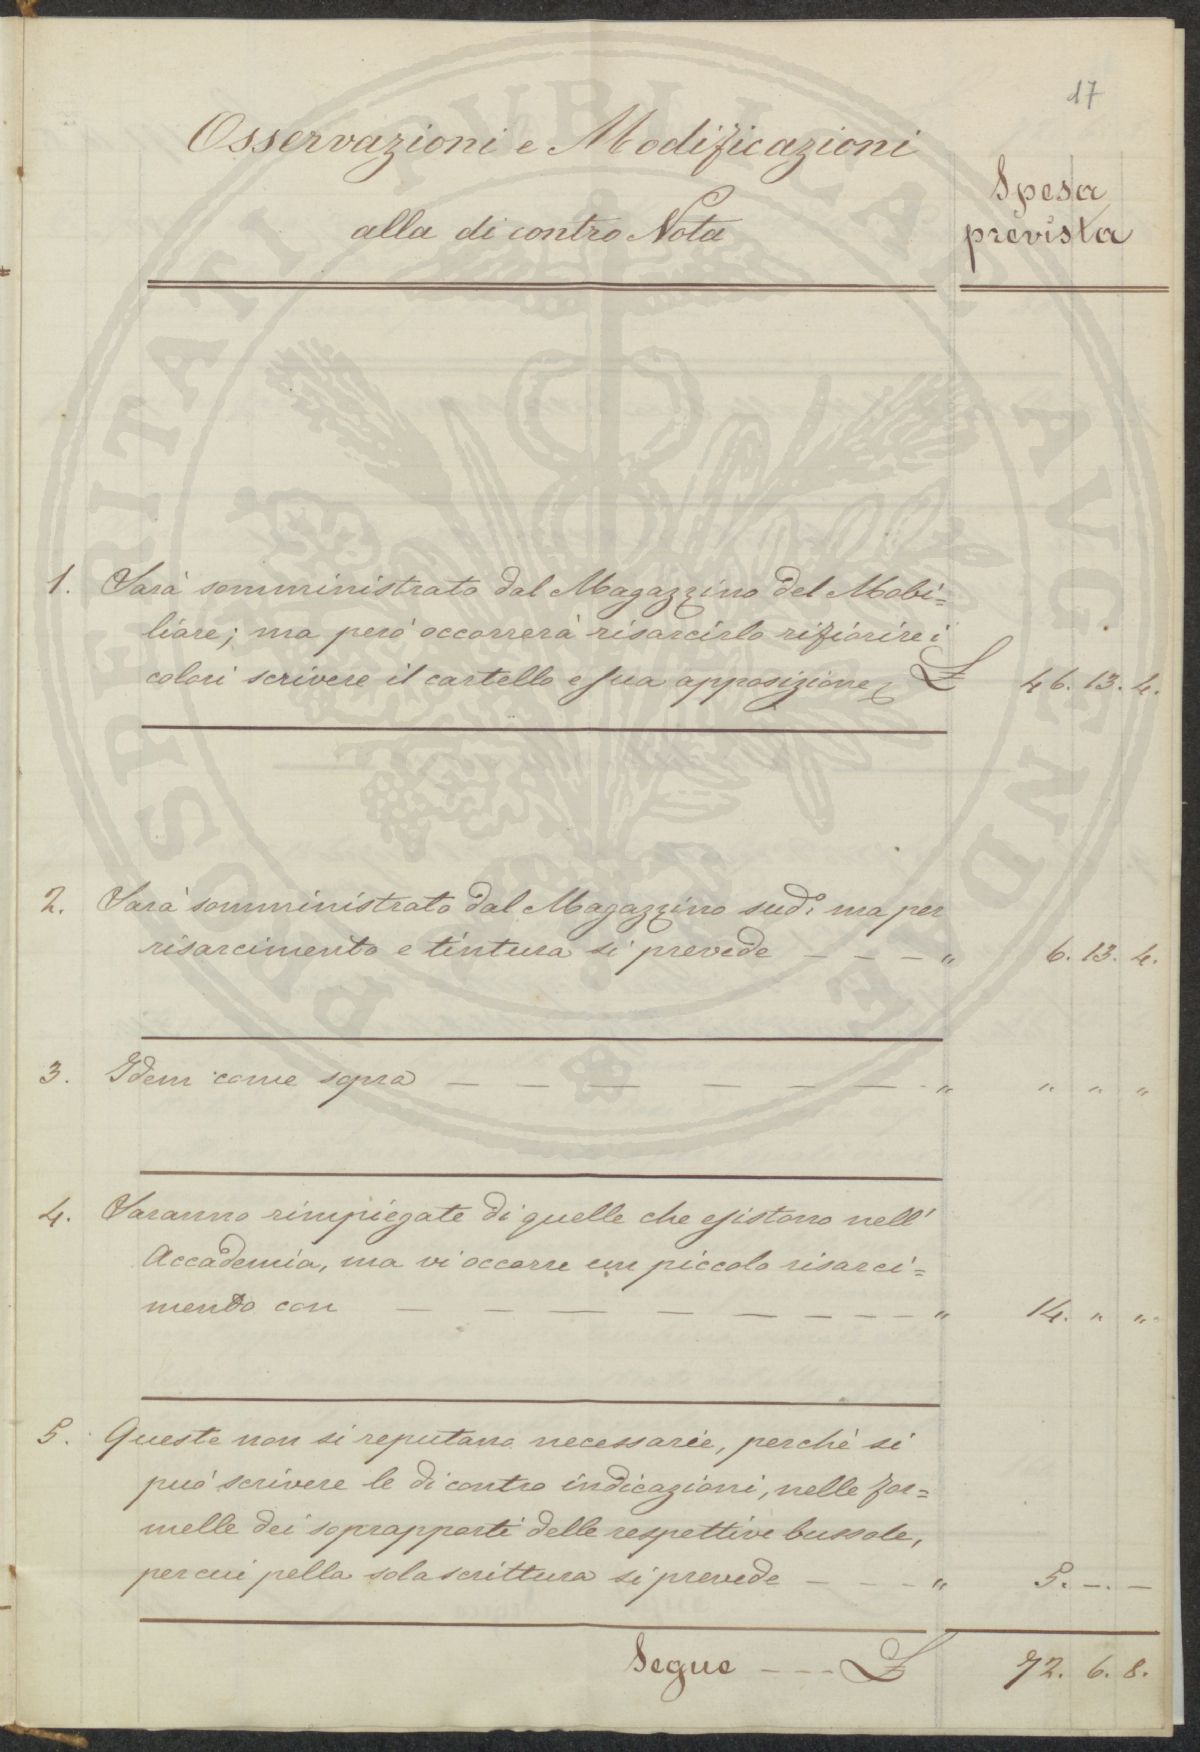 17
Osservazioni e Modificazioni
alla di contro Nota
Spesa
prevista
1. Sarà somministrato dal Magazzino del Mobi=
liare; ma però occorrerà risarcirlo rifiorire i
colori scrivere il cartello e sua apposizione £ 46. 13. 4.
2. Sarà somministrato dal Magazzino sudo. ma per
risarcimento e tintura si prevede — — — „ 6. 13. 4.
3. Idem come sopra — — — — — — „ „ „ „
4. Saranno rimpiegate di quelle che esistono nell'
Accademia, ma vi occorre un piccolo risarci=
mento con — — — — — — — — „ 14. „ „
5. Queste non si reputano necessarie, perchè si
può scrivere le di contro indicazioni, nelle for=
melle dei soprapporti delle respettive bussole,
per cui pella sola scrittura si prevede — — — „ 5. —. —
Segue — — — £ 72. 6. 8.
PROSPERITATI PVBLICAE AVGENDAE